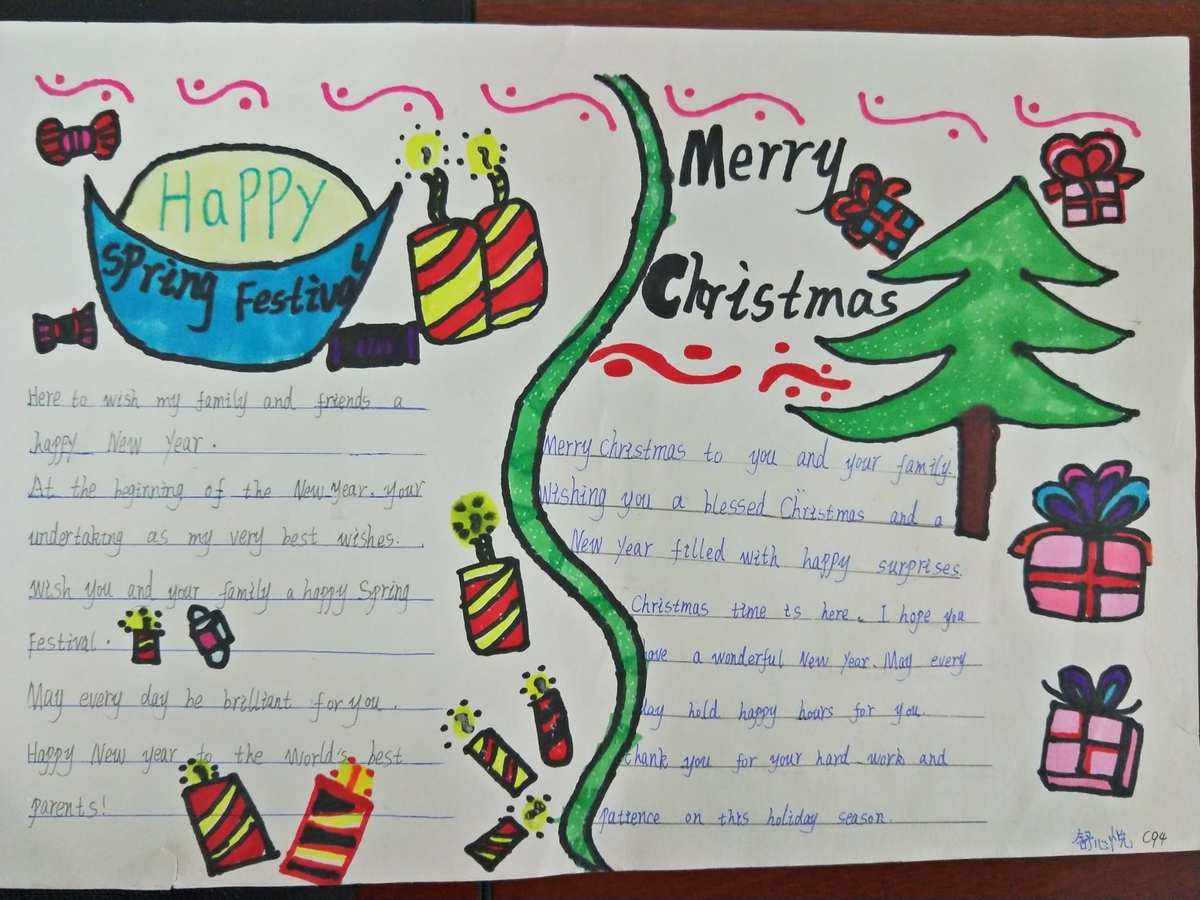 Happy
Spring Festival
Here to wish my family and friends a
happy New Year.
At the beginning of the New Year. your
undertaking as my very best wishes.
Wish you and your family a happy Spring
Festival.
May every day be brilliant for you.
Happy New year to the World's best
parents!
Merry
Christmas
Merry Christmas to you and your family.
Wishing you a blessed Christmas and a
New Year filled with happy surprises.
Christmas time is here. I hope you
have a wonderful New Year. May every
day hold happy hours for you.
thank you for your hard work and
patience on this holiday season.
舒心悦 C94